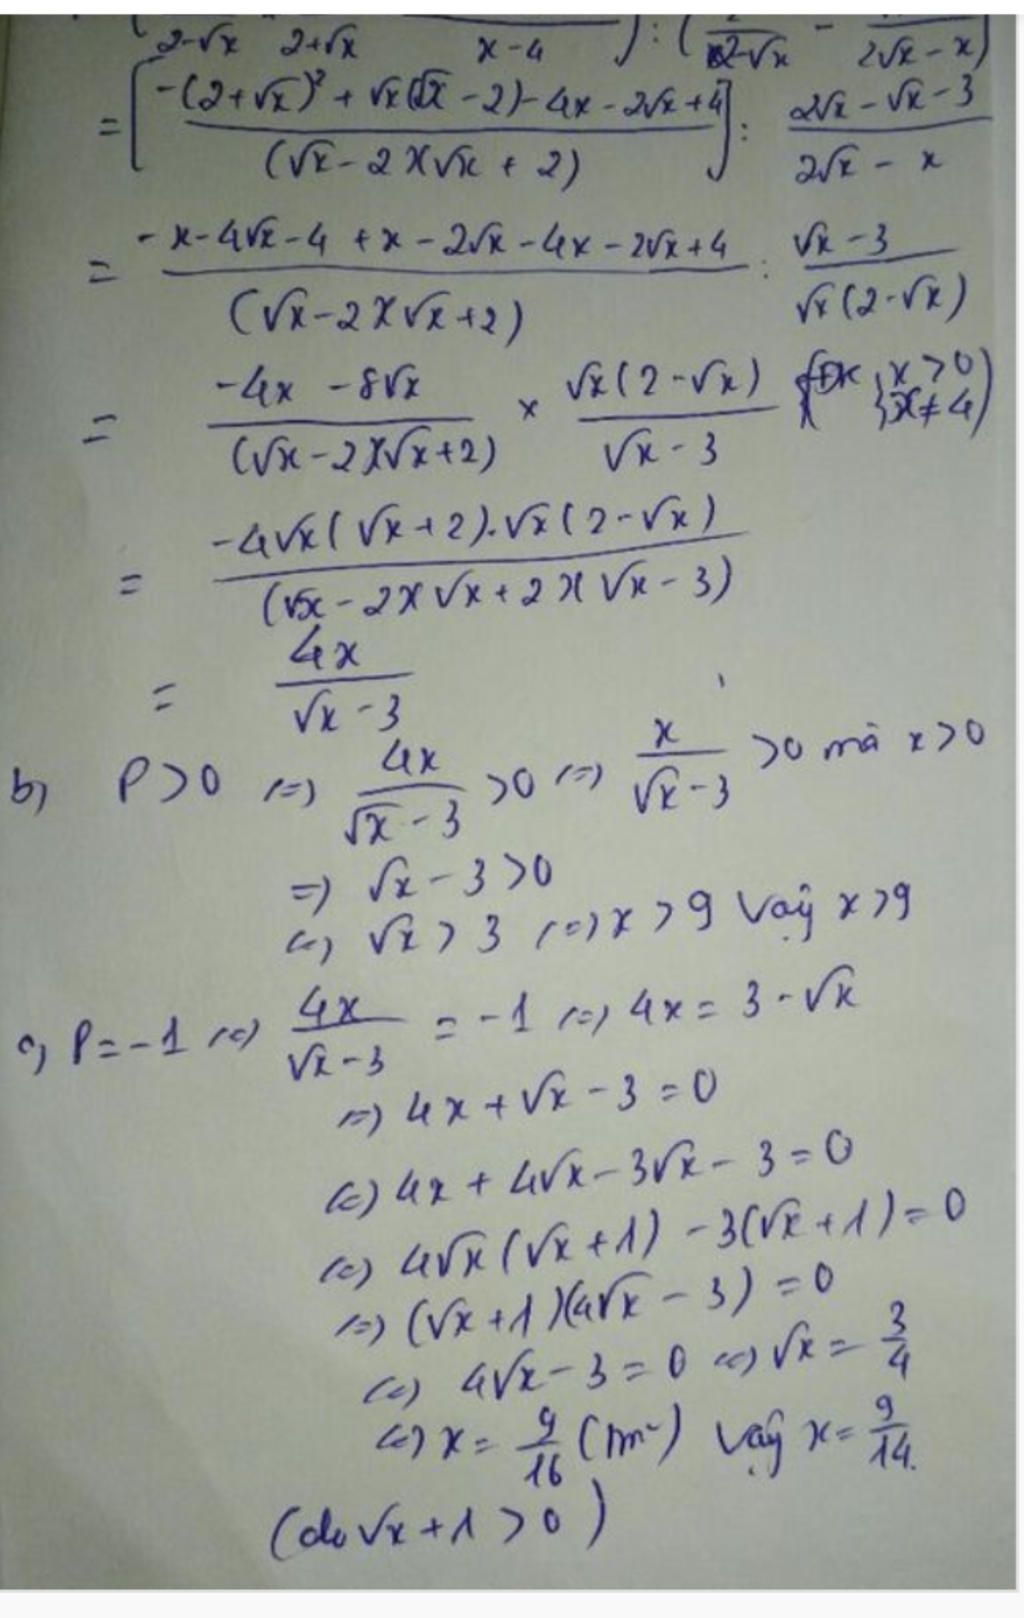 2-√x 2+√x x-4 ) : ( 2-√x - 2√x - x )
= [ -(2+√x)² + √x(√x - 2) - 4x - 2√x + 4 / (√x - 2)(√x + 2) ] : 2√x - √x - 3 / 2√x - x
= -x - 4√x - 4 + x - 2√x - 4x - 2√x + 4 / (√x - 2)(√x + 2) : √x - 3 / √x(2 - √x)
= -4x - 8√x / (√x - 2)(√x + 2) × √x(2 - √x) / √x - 3 (ĐK x > 0 ; x ≠ 4)
= -4√x(√x + 2).√x(2 - √x) / (√x - 2)(√x + 2)(√x - 3)
= 4x / √x - 3
b, P > 0 (=) 4x / √x - 3 > 0 (=) x / √x - 3 > 0 mà x > 0
=) √x - 3 > 0
(=) √x > 3 (=) x > 9 Vậy x > 9
c, P = -1 (=) 4x / √x - 3 = -1 (=) 4x = 3 - √x
(=) 4x + √x - 3 = 0
(=) 4x + 4√x - 3√x - 3 = 0
(=) 4√x (√x + 1) - 3(√x + 1) = 0
(=) (√x + 1)(4√x - 3) = 0
(=) 4√x - 3 = 0 (=) √x = 3/4
(=) x = 9/16 (tm²) Vậy x = 9/14.
(do √x + 1 > 0)